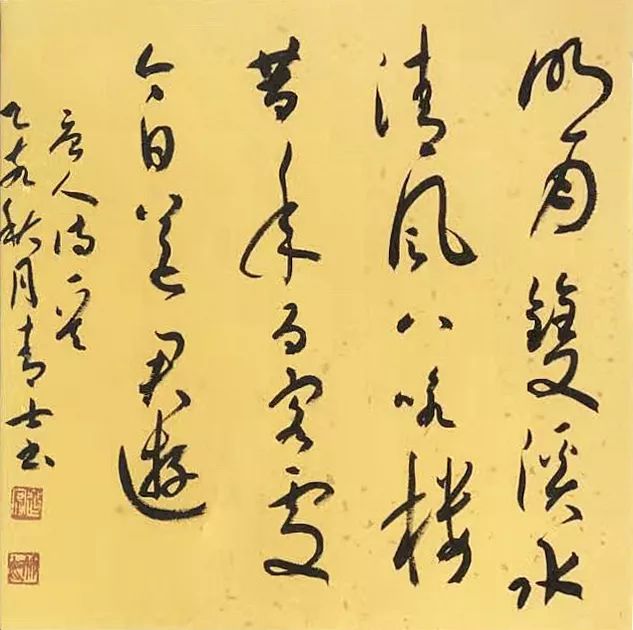 明月雙溪水
清風八咏樓
昔年為客處
今日送君遊
唐人詩一首
乙亥秋月青士書